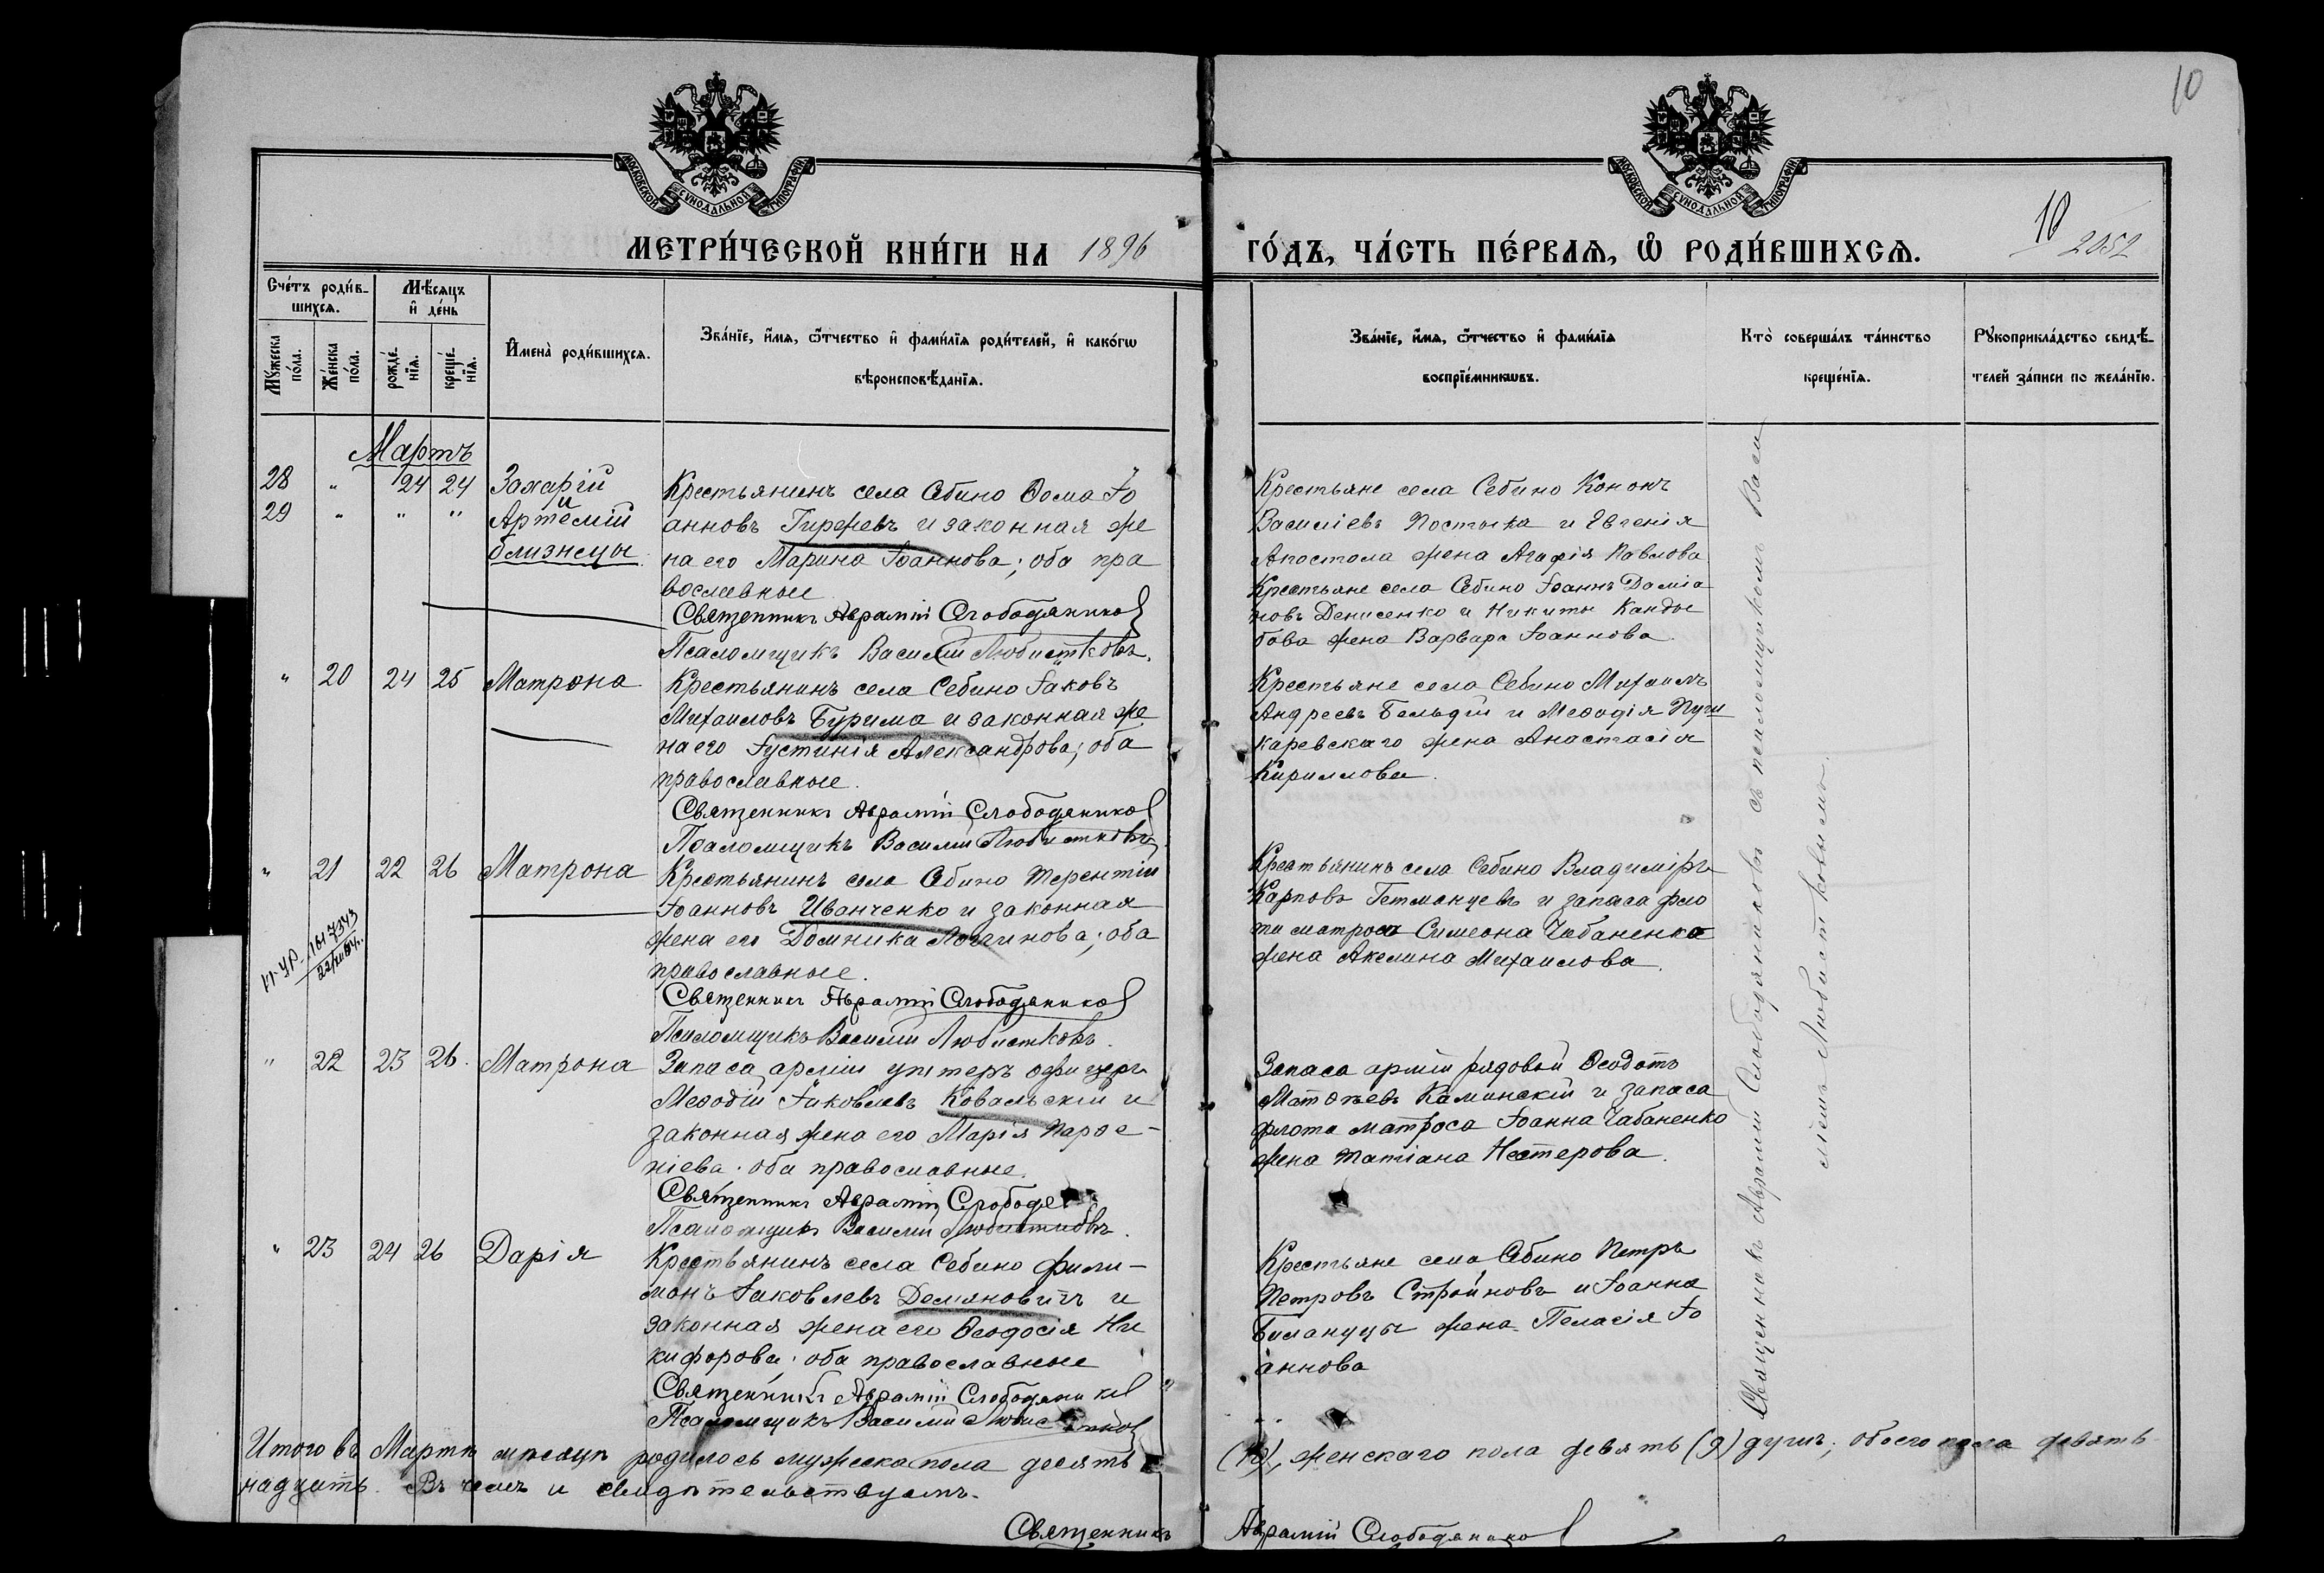 10
МОСКОВСКОЙ СУНОДАЛЬНОЙ ТИПОГРАФІИ
МОСКОВСКОЙ СУНОДАЛЬНОЙ ТИПОГРАФІИ
МЕТРИ́ЧЕСКОЙ КНИ́ГИ НА 1896
ГО́ДЪ, ЧА́СТЬ ПЕ́РВАЯ, Ѡ РОДИ́ВШИХСЯ.
10
2052
Сче́тъ роди́в-
шихся.
Мѣсяцъ
и де́нь
Му́жеска по́ла.
Же́нска по́ла.
рожде́-нїя.
креще́-нїя.
Имена̀ роди́вшихся.
Зва́нїе, и́мя, ѻ́тчество и фами́лїя роди́телей, и како́гѡ
вѣроисповѣ́данїя.
Зва́нїе, и́мя, ѻ́тчество и фами́лїя
воспрїе́мникѡвъ.
Кто̀ соверша́лъ та́инство
креще́нїя.
Рукоприкла́дство свидѣ́-
телей за́писи по жела́нїю.
Мартъ
28 " 24 24 Захарій
и
29 " " " Артемій
близнецы
Крестьянинъ села Себино Ѳома Іо
анновъ Гиржевъ и законная же
на его Марина Іоаннова; оба пра
вославные
Священникъ Аврамій Слободяников
Псаломщикъ Василій Любистковъ.
Крестьяне села Себино Кононъ
Василіевъ Постика и Евгенія
Апостола жена Агафія Павлова
Крестьяне села Себино Іоаннъ Даміа
новъ Денисенко и Никиты Канды
бова жена Варвара Іоаннова.
" 20 24 25 Матрона
Крестьянинъ села Себино Іаковъ
Михаиловъ Бурима и законная же
на его Іустинія Александрова; оба
православные.
Священникъ Аврамій Слободяников
Псаломщикъ Василій Любистковъ
Крестьяне села Себино Михаилъ
Андреевъ Бельдій и Меѳодія Пуш
каревскаго жена Анастасія
Кириллова.
" 21 22 26 Матрона
Крестьянинъ села Себино Терентій
Іоанновъ Иванченко и законная
жена его Домника Логгинова; оба
православные.
Священникъ Аврамій Слободяников
Псаломщикъ Василій Любистковъ.
Крестьянинъ села Себино Владиміръ
Карповъ Гетманцевъ и запаса фло
та матроса Симеона Чабаненко
жена Акелина Михаилова.
" 22 23 26. Матрона
Запаса арміи унтеръ офицеръ
Меѳодій Іаковлевъ Ковальскій и
законная жена его Марія Парѳе-
ніева. оба православные.
Священникъ Аврамій
Псаломщикъ Василій Любистковъ.
Запаса арміи рядовой Ѳеодотъ
Матѳѣевъ Каминскій и запаса
флота матроса Іоанна Чабаненко
жена Татіана Нестерова.
" 23 24 26 Дарія
Крестьянинъ села Себино Фили-
монъ Іаковлевъ Демяновичъ и
законная жена его Ѳеодосія Ни
кифорова; оба православные
Священникъ Аврамій Слободяников
Псаломщикъ Василій
Крестьяне села Себино Петръ
Петровъ Стройновъ и Іоанна
жена Пелагія Іо
аннова
Священникъ Аврамій Слободяниковъ съ псаломщикомъ Васи
ліемъ Любистковымъ.
Итого въ Мартѣ мѣсяцѣ родилось мужеска пола десять (10), женскаго пола девять (9) душъ; обоего пола девять-
надцать. Въ чемъ и свидѣтельствуемъ.
Священникъ Аврамій Слободяников